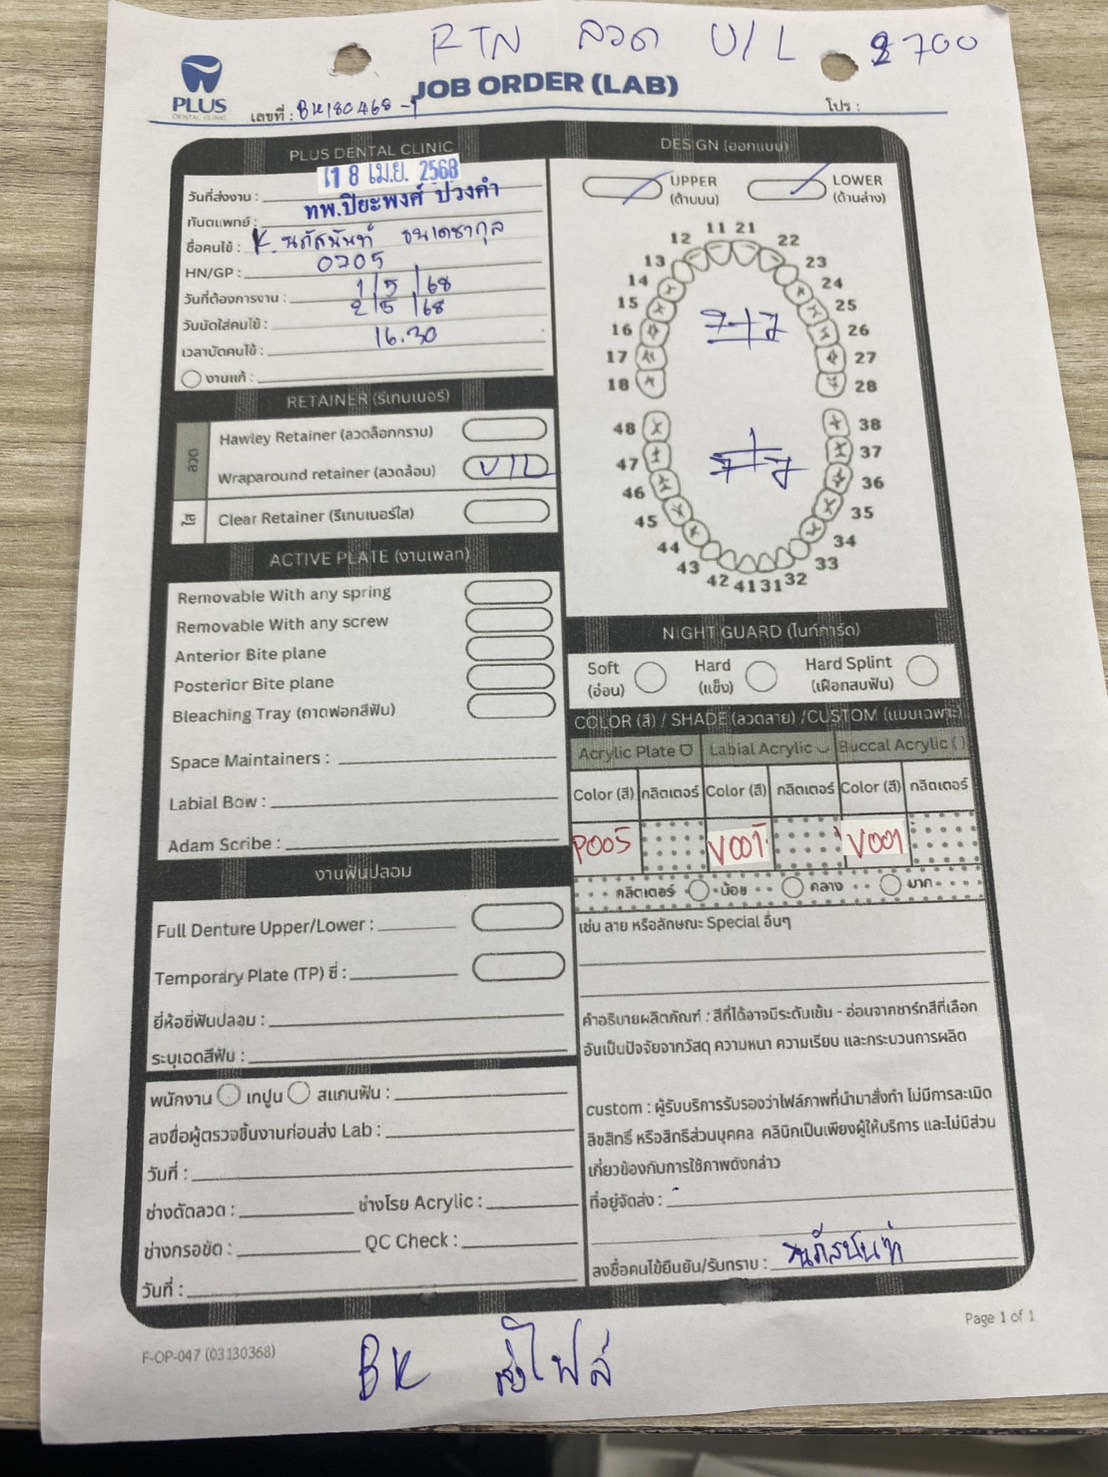 RTN ลวด U/L 2700
PLUS
DENTAL CLINIC
JOB ORDER (LAB)
เลขที่ : BK180468-1
โปร :
PLUS DENTAL CLINIC
วันที่ส่งงาน : 18 เม.ย. 2568
ทันตแพทย์ : ทพ.ปิยะพงศ์ ปวงคำ
ชื่อคนไข้ : K. นภัสนันท์ ธนเดชากุล
HN/GP : 0705
วันที่ต้องการงาน : 1/5/68
วันนัดใส่คนไข้ : 2/5/68
เวลานัดคนไข้ : 16.30
งานแก้ :
RETAINER (รีเทนเนอร์)
ลวด
Hawley Retainer (ลวดล็อกกราม)
Wraparound retainer (ลวดล้อม) U/L
ใส
Clear Retainer (รีเทนเนอร์ใส)
ACTIVE PLATE (งานเพลท)
Removable With any spring
Removable With any screw
Anterior Bite plane
Posterior Bite plane
Bleaching Tray (ถาดฟอกสีฟัน)
Space Maintainers :
Labial Bow :
Adam Scribe :
งานฟันปลอม
Full Denture Upper/Lower :
Temporary Plate (TP) ซี่ :
ยี่ห้อซี่ฟันปลอม :
ระบุเฉดสีฟัน :
พนักงาน เทปูน สแกนฟัน :
ลงชื่อผู้ตรวจชิ้นงานก่อนส่ง Lab :
วันที่ :
ช่างดัดลวด : ช่างโรย Acrylic :
ช่างกรอขัด : QC Check :
วันที่ :
DESIGN (ออกแบบ)
UPPER LOWER
(ด้านบน) (ด้านล่าง)
11 21
12 22
13 23
14 24
15 25
16 7 7 26
17 27
18 28
48 38
47 7 7 37
46 36
45 35
44 34
43 33
42 41 31 32
NIGHT GUARD (ไนท์การ์ด)
Soft Hard Hard Splint
(อ่อน) (แข็ง) (เฝือกสบฟัน)
COLOR (สี) / SHADE (ลวดลาย) /CUSTOM (แบบเฉพาะ)
Acrylic Plate Labial Acrylic Buccal Acrylic ( )
Color (สี) กลิตเตอร์ Color (สี) กลิตเตอร์ Color (สี) กลิตเตอร์
P005 V001 V001
กลิตเตอร์ น้อย กลาง มาก
เช่น ลาย หรือลักษณะ Special อื่นๆ
คำอธิบายผลิตภัณฑ์ : สีที่ได้อาจมีระดับเข้ม - อ่อนจากชาร์ทสีที่เลือก
อันเป็นปัจจัยจากวัสดุ ความหนา ความเรียบ และกระบวนการผลิต
custom : ผู้รับบริการรับรองว่าไฟล์ภาพที่นำมาสั่งทำ ไม่มีการละเมิด
ลิขสิทธิ์ หรือสิทธิส่วนบุคคล คลินิกเป็นเพียงผู้ให้บริการ และไม่มีส่วน
เกี่ยวข้องกับการใช้ภาพดังกล่าว
ที่อยู่จัดส่ง : -
ลงชื่อคนไข้ยืนยัน/รับทราบ : นภัสนันท์
Page 1 of 1
F-OP-047 (03130368)
BK ส่งไฟล์